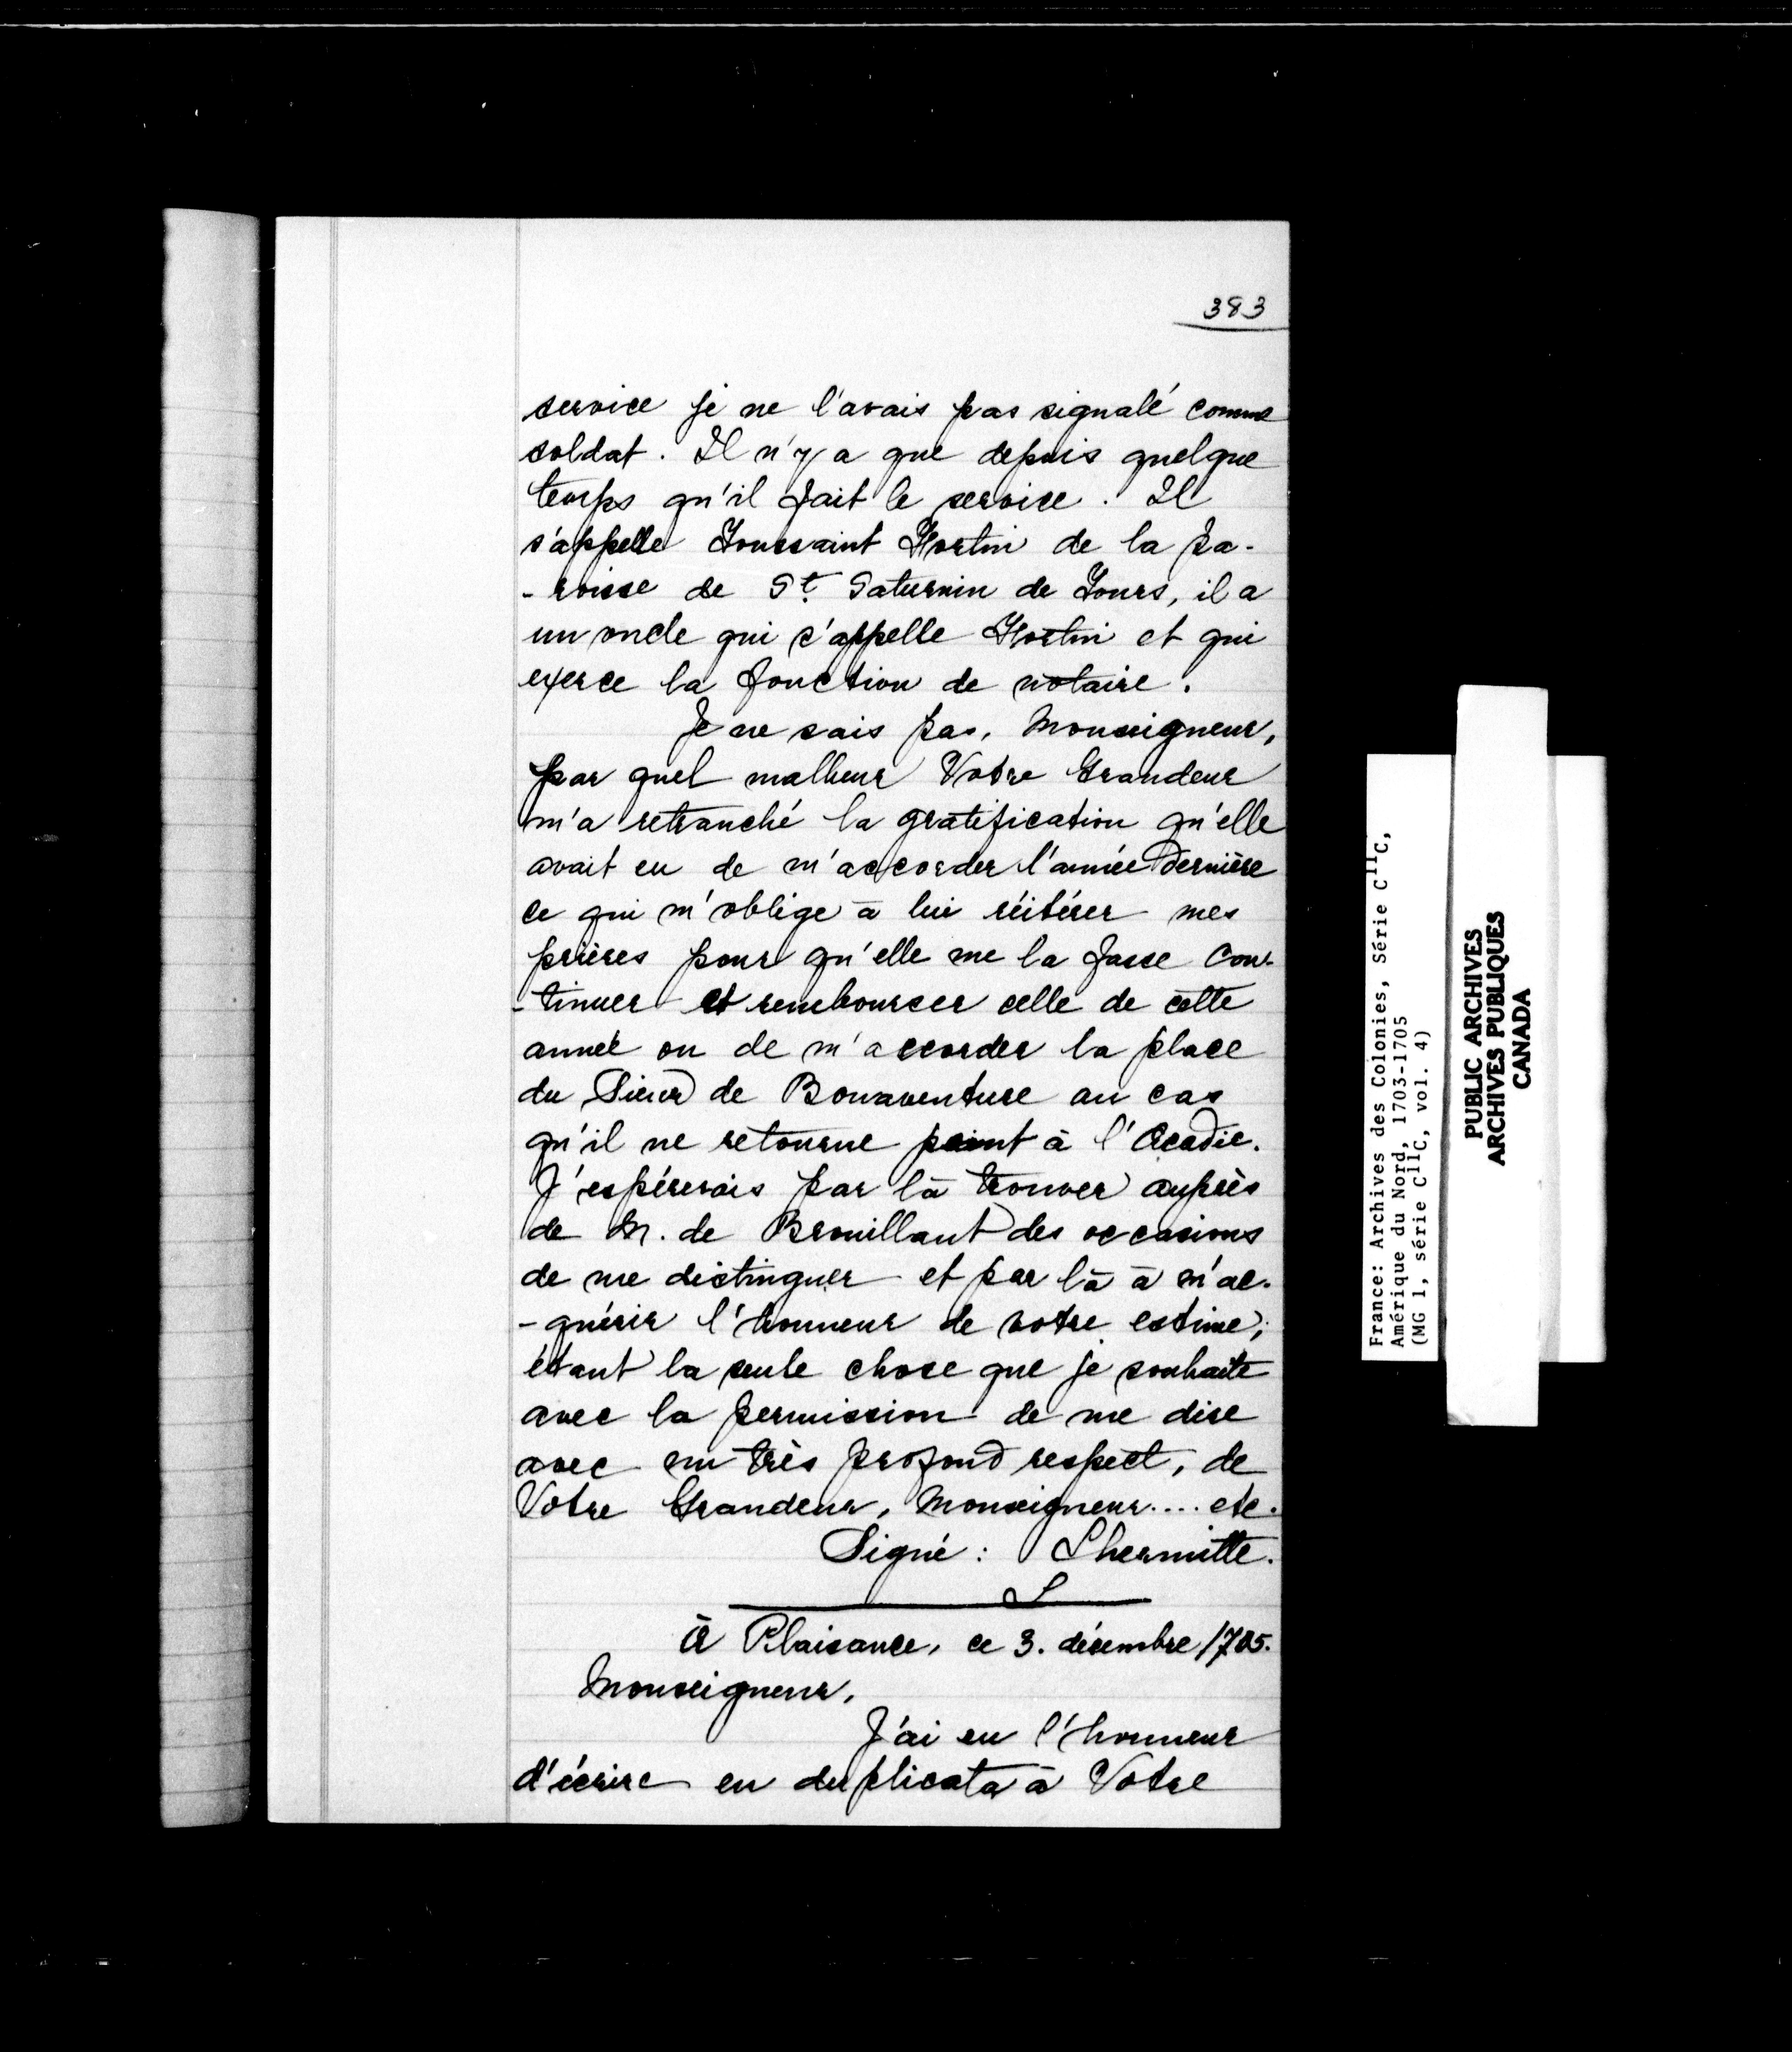 383
service je ne l'avais pas signalé comme
soldat. Il n'y a que depuis quelque
temps qu'il fait le service. Il
s'appelle Toussaint Hortin de la pa-
-roisse de St. Saturnin de Tours, il a
un oncle qui s'appelle Hortin et qui
exerce la fonction de notaire.
Je ne sais pas, Monseigneur,
par quel malheur Votre Grandeur
m'a retranché la gratification qu'elle
avait eu de m'accorder l'année dernière
ce qui m'oblige à lui réitérer mes
prières pour qu'elle me la fasse con-
-tinuer et rembourser celle de cette
année ou de m'accorder la place
du Sieur de Bonaventure au cas
qu'il ne retourne point à l'Acadie.
J'espérerais par là trouver auprès
de M. de Brouillant des occasions
de me distinguer et par là à m'ac-
-quérir l'honneur de votre estime;
étant la seule chose que je souhaite
avec la permission de me dire
avec un très profond respect, de
Votre Grandeur, Monseigneur.... etc.
Signé: Lhermitte.
À Plaisance, ce 3. décembre 1705.
Monseigneur,
J'ai eu l'honneur
d'écrire en duplicata à Votre
France: Archives des Colonies, Série C11C,
Amérique du Nord, 1703-1705
(MG 1, série C11C, vol. 4)
PUBLIC ARCHIVES
ARCHIVES PUBLIQUES
CANADA